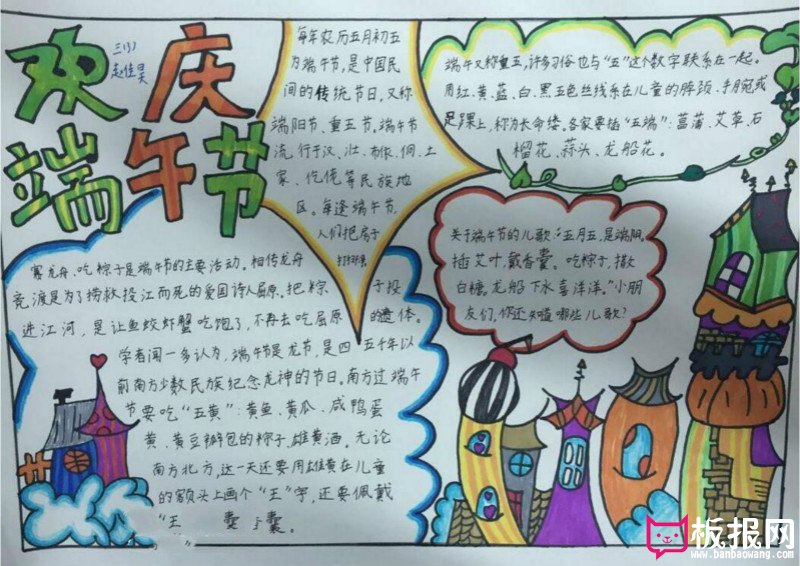 欢庆
端午节
三(3)
赵佳昊
每年农历五月初五
为端午节,是中国民
间的传统节日,又称
端阳节、重五节。端午节
流行于汉、壮、布依、侗、土
家、仡佬等民族地
区。每逢端午节,
人们把房子
打扫得
端午又称重五,许多习俗也与“五”这个数字联系在一起。
用红、黄、蓝、白、黑五色丝线系在儿童的脖颈、手腕或
足踝上,称为长命缕。各家要插“五端”:菖蒲、艾草、石
榴花、蒜头、龙船花。
赛龙舟、吃粽子是端午节的主要活动。相传龙舟
竞渡是为了捞救投江而死的爱国诗人屈原。把粽子投
进江河,是让鱼蛟虾蟹吃饱了,不再去吃屈原的遗体。
学者闻一多认为,端午节是龙节,是四五千年以
前南方少数民族纪念龙神的节日。南方过端午
节要吃“五黄”:黄鱼、黄瓜、咸鸭蛋
黄、黄豆瓣包的粽子、雄黄酒。无论
南方北方,这一天还要用雄黄在儿童
的额头上画个“王”字,还要佩戴
“王 囊 囊。
关于端午节的儿歌“五月五,是端阳。
插艾叶,戴香囊。吃粽子,撒
白糖。龙船下水喜洋洋。”小朋
友们,你还知道哪些儿歌?
板报网
www.banbaowang.com